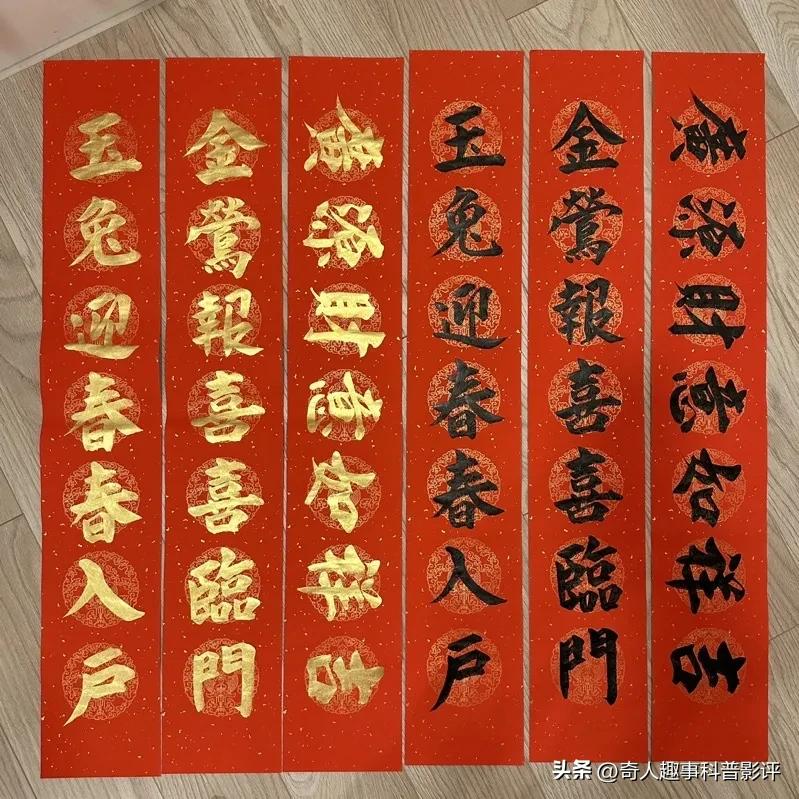 玉兔迎春春入户
金鶯報喜喜臨門
吉祥如意財源廣
玉兔迎春春入户
金鶯報喜喜臨門
吉祥如意財源廣
头条 @奇人趣事科普影评